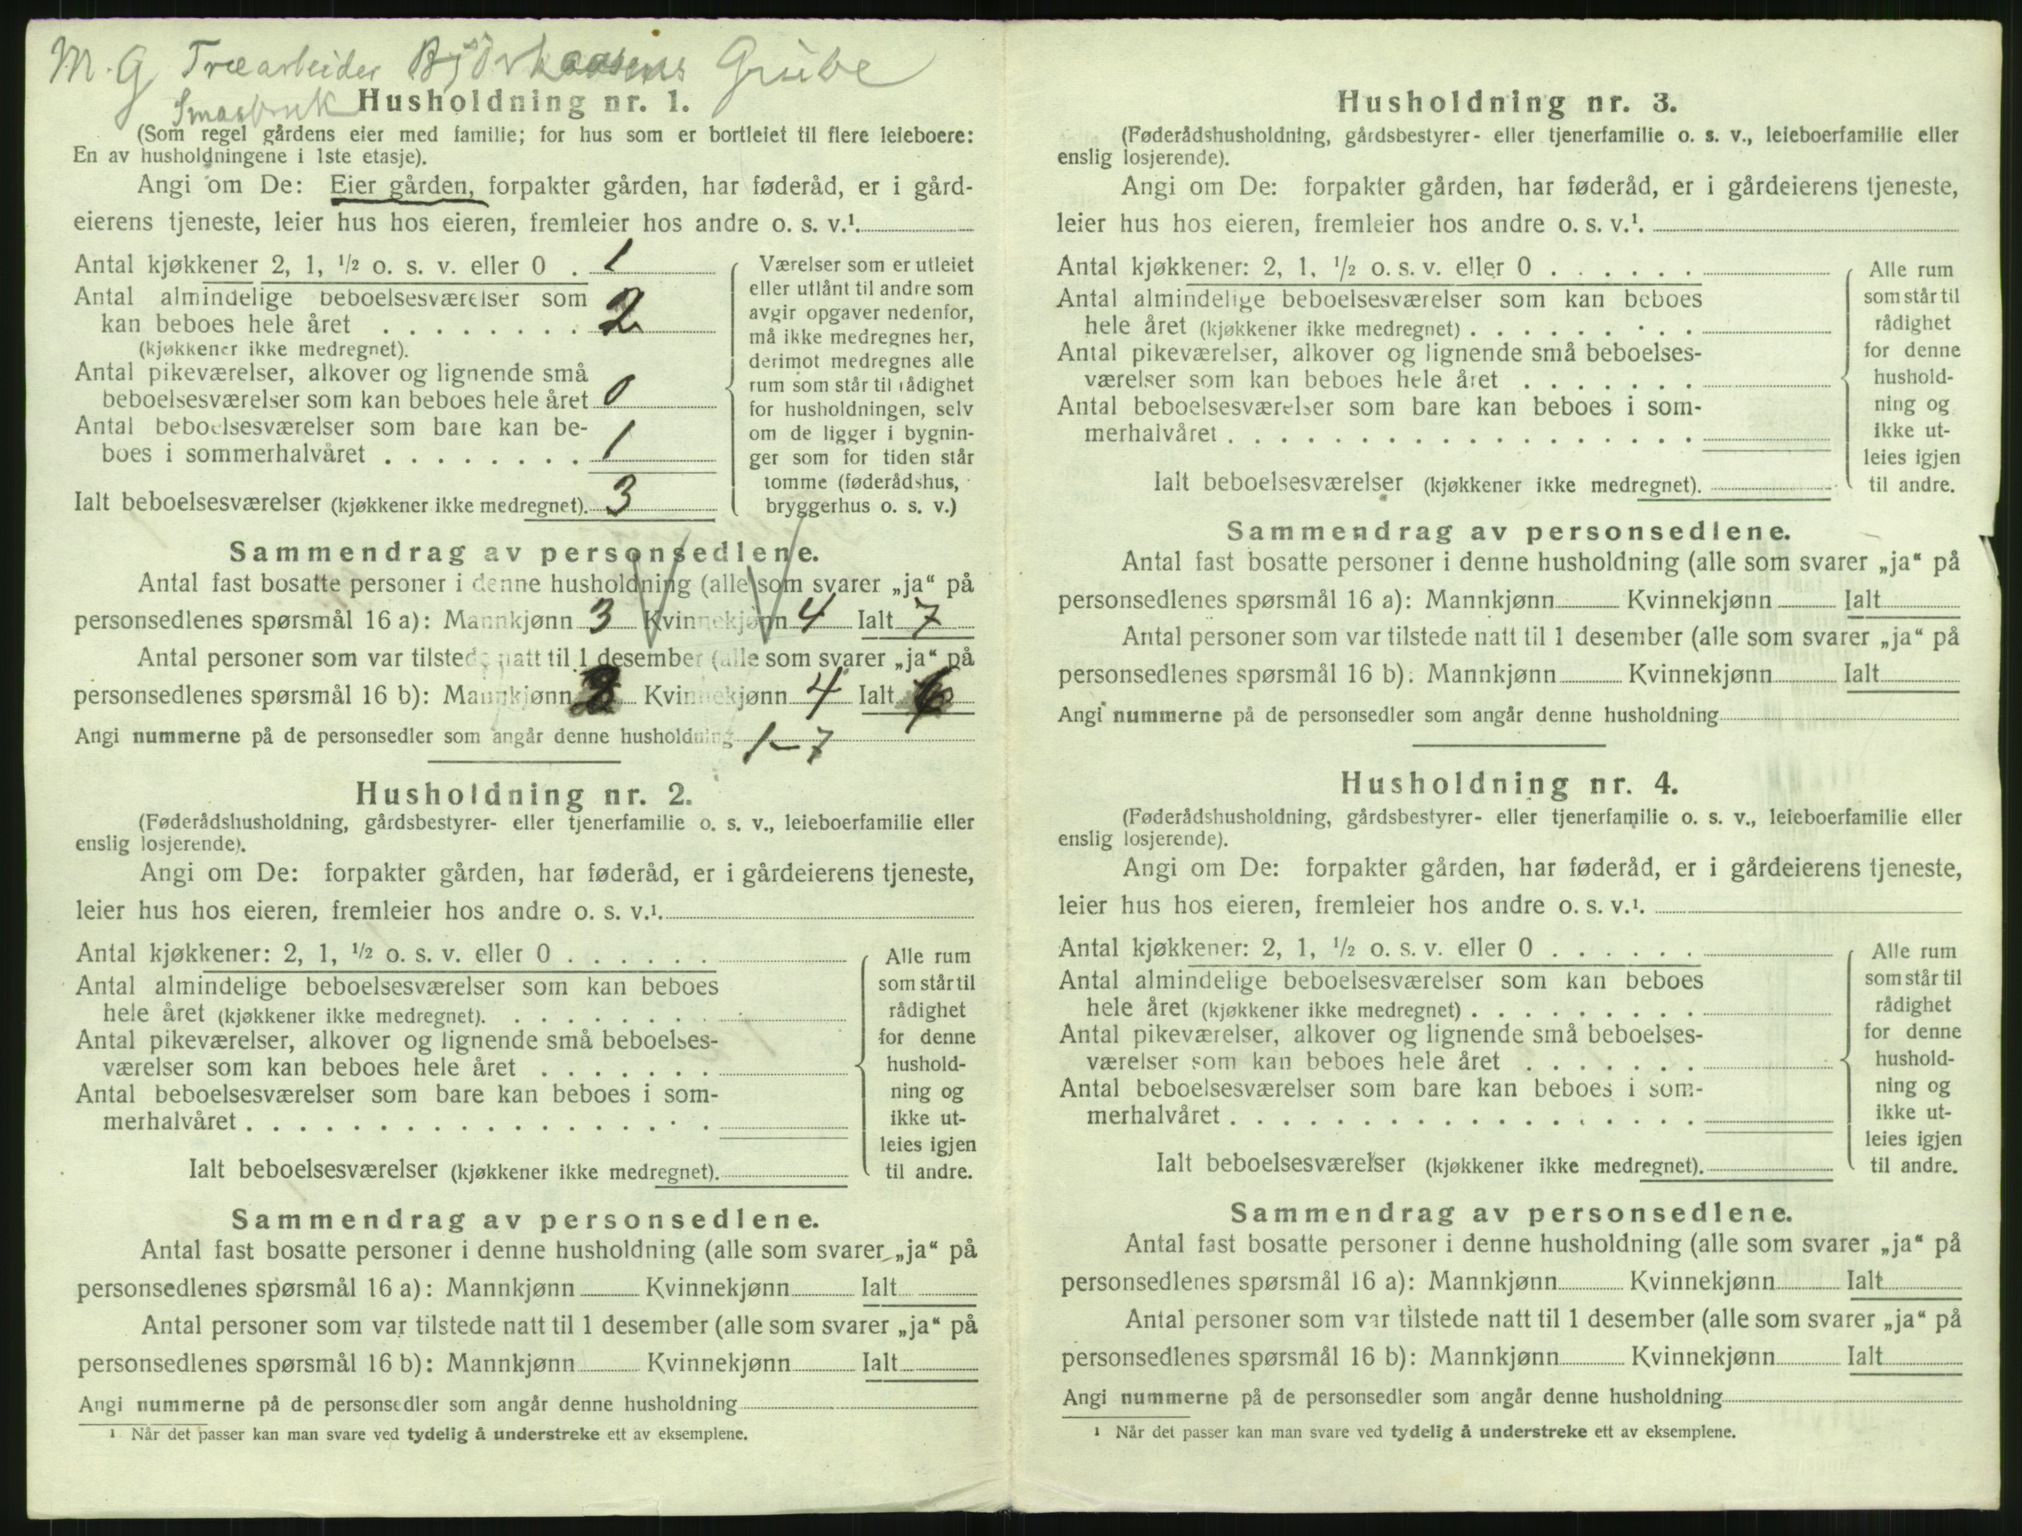 M. G Træarbeider Bjørkaasens Grube
Smaabruk
Husholdning nr. 1.
(Som regel gårdens eier med familie; for hus som er bortleiet til flere leieboere:
En av husholdningene i 1ste etasje).
Angi om De: Eier gården, forpakter gården, har føderåd, er i gård-
eierens tjeneste, leier hus hos eieren, fremleier hos andre o. s. v.¹.
Antal kjøkkener 2, 1, ½ o. s. v. eller 0 . 1
Antal almindelige beboelsesværelser som
kan beboes hele året . . . . . . . . 2
(kjøkkener ikke medregnet).
Antal pikeværelser, alkover og lignende små
beboelsesværelser som kan beboes hele året 0
Antal beboelsesværelser som bare kan be-
boes i sommerhalvåret . . . . . . . . 1
Ialt beboelsesværelser (kjøkkener ikke medregnet). 3
Værelser som er utleiet
eller utlånt til andre som
avgir opgaver nedenfor,
må ikke medregnes her,
derimot medregnes alle
rum som står til rådighet
for husholdningen, selv
om de ligger i bygnin-
ger som for tiden står
tomme (føderådshus,
bryggerhus o. s. v.)
Sammendrag av personsedlene.
Antal fast bosatte personer i denne husholdning (alle som svarer „ja“ på
personsedlenes spørsmål 16 a): Mannkjønn 3 Kvinnekjønn 4 Ialt 7
Antal personer som var tilstede natt til 1 desember (alle som svarer „ja“ på
personsedlenes spørsmål 16 b): Mannkjønn 2 Kvinnekjønn 4 Ialt 6
Angi nummerne på de personsedler som angår denne husholdning 1–7
Husholdning nr. 2.
(Føderådshusholdning, gårdsbestyrer- eller tjenerfamilie o. s. v., leieboerfamilie eller
enslig losjerende).
Angi om De: forpakter gården, har føderåd, er i gårdeierens tjeneste,
leier hus hos eieren, fremleier hos andre o. s. v.¹.
Antal kjøkkener: 2, 1, ½ o. s. v. eller 0 . . . . . .
Antal almindelige beboelsesværelser som kan beboes
hele året (kjøkkener ikke medregnet). . . . . . . . .
Antal pikeværelser, alkover og lignende små beboelses-
værelser som kan beboes hele året . . . . . . .
Antal beboelsesværelser som bare kan beboes i som-
merhalvåret . . . . . . . . . . . . . . . . . .
Ialt beboelsesværelser (kjøkkener ikke medregnet).
Alle rum
som står til
rådighet
for denne
hushold-
ning og
ikke ut-
leies igjen
til andre.
Sammendrag av personsedlene.
Antal fast bosatte personer i denne husholdning (alle som svarer „ja“ på
personsedlenes spørsmål 16 a): Mannkjønn Kvinnekjønn Ialt
Antal personer som var tilstede natt til 1 desember (alle som svarer „ja“ på
personsedlenes spørsmål 16 b): Mannkjønn Kvinnekjønn Ialt
Angi nummerne på de personsedler som angår denne husholdning
¹ Når det passer kan man svare ved tydelig å understreke ett av eksemplene.
Husholdning nr. 3.
(Føderådshusholdning, gårdsbestyrer- eller tjenerfamilie o. s. v., leieboerfamilie eller
enslig losjerende).
Angi om De: forpakter gården, har føderåd, er i gårdeierens tjeneste,
leier hus hos eieren, fremleier hos andre o. s. v.¹.
Antal kjøkkener: 2, 1, ½ o. s. v. eller 0 . . . . . .
Antal almindelige beboelsesværelser som kan beboes
hele året (kjøkkener ikke medregnet) . . . . . . . . .
Antal pikeværelser, alkover og lignende små beboelses-
værelser som kan beboes hele året . . . . . . .
Antal beboelsesværelser som bare kan beboes i som-
merhalvåret . . . . . . . . . . . . . . . . . .
Ialt beboelsesværelser (kjøkkener ikke medregnet).
Alle rum
som står til
rådighet
for denne
hushold-
ning og
ikke ut-
leies igjen
til andre.
Sammendrag av personsedlene.
Antal fast bosatte personer i denne husholdning (alle som svarer „ja“ på
personsedlenes spørsmål 16 a): Mannkjønn Kvinnekjønn Ialt
Antal personer som var tilstede natt til 1 desember (alle som svarer „ja“ på
personsedlenes spørsmål 16 b). Mannkjønn Kvinnekjønn Ialt
Angi nummerne på de personsedler som angår denne husholdning
Husholdning nr. 4.
(Føderådshusholdning, gårdsbestyrer- eller tjenerfamilie o. s. v., leieboerfamilie eller
enslig losjerende).
Angi om De: forpakter gården, har føderåd, er i gårdeierens tjeneste,
leier hus hos eieren, fremleier hos andre o. s. v.¹.
Antal kjøkkener: 2, 1, ½ o. s. v. eller 0 . . . . . .
Antal almindelige beboelsesværelser som kan beboes
hele året (kjøkkener ikke medregnet) . . . . . . . . .
Antal pikeværelser, alkover og lignende små beboelses-
værelser som kan beboes hele året . . . . . . .
Antal beboelsesværelser som bare kan beboes i som-
merhalvåret . . . . . . . . . . . . . . . . . .
Ialt beboelsesværelser (kjøkkener ikke medregnet).
Alle rum
som står til
rådighet
for denne
hushold-
ning og
ikke ut-
leies igjen
til andre.
Sammendrag av personsedlene.
Antal fast bosatte personer i denne husholdning (alle som svarer „ja“ på
personsedlenes spørsmål 16 a): Mannkjønn Kvinnekjønn Ialt
Antal personer som var tilstede natt til 1 desember (alle som svarer „ja“ på
personsedlenes spørsmål 16 b): Mannkjønn Kvinnekjønn Ialt
Angi nummerne på de personsedler som angår denne husholdning
¹ Når det passer kan man svare ved tydelig å understreke ett av eksemplene.